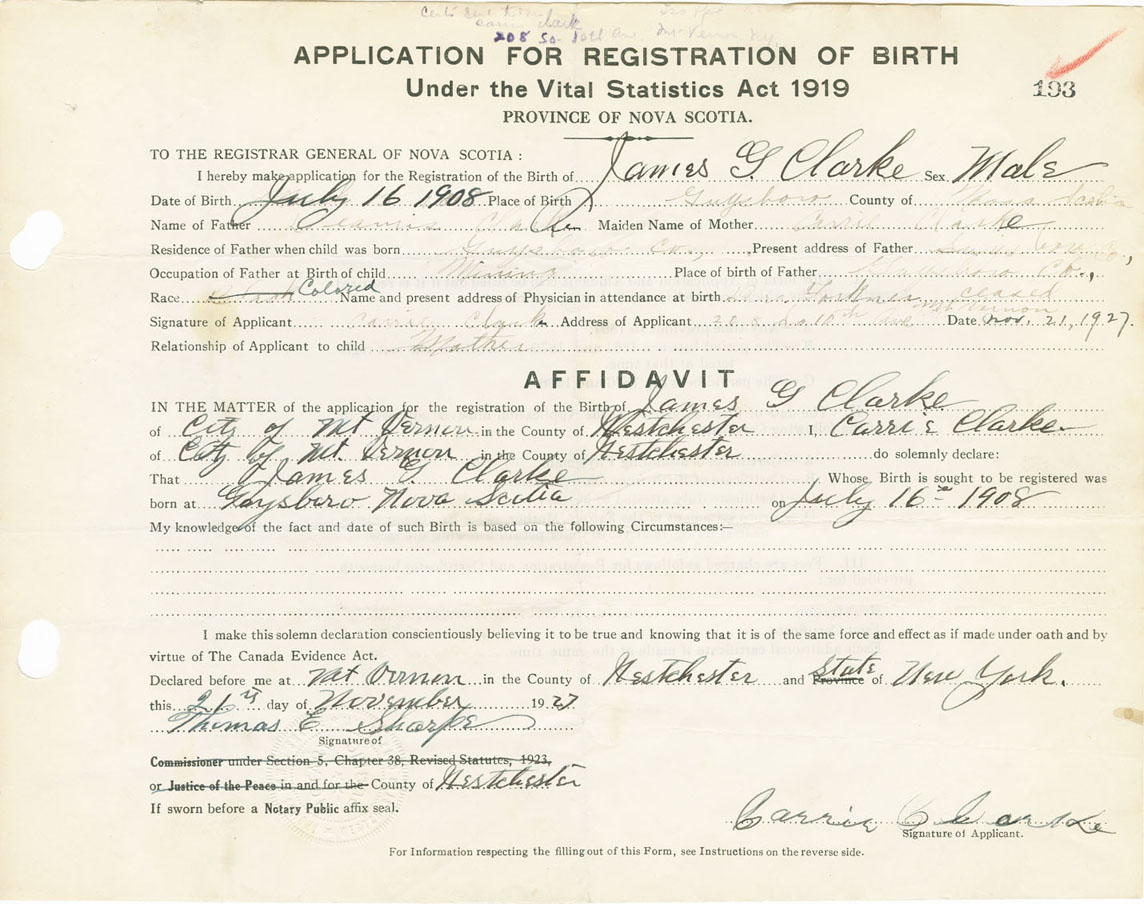 Carrie Clark
208 So. 10th Av. Mt Vernon Ny.
APPLICATION FOR REGISTRATION OF BIRTH
Under the Vital Statistics Act 1919
193
PROVINCE OF NOVA SCOTIA.
TO THE REGISTRAR GENERAL OF NOVA SCOTIA:
I hereby make application for the Registration of the Birth of James G Clarke Sex Male
Date of Birth July 16 1908 Place of Birth Guysboro County of Nova Scotia
Name of Father Clarke Maiden Name of Mother Carrie Clarke
Residence of Father when child was born Guysboro Co., Present address of Father Co.,
Occupation of Father at Birth of child Mining Place of birth of Father Co.,
Race Black Colored Name and present address of Physician in attendance at birth
Signature of Applicant Carrie Clark Address of Applicant 208 So 10th Ave Mt Vernon Date Nov. 21, 1927.
Relationship of Applicant to child Mother
AFFIDAVIT
IN THE MATTER of the application for the registration of the Birth of James G Clarke
of City of Mt Vernon in the County of Westchester I, Carrie Clarke
of City of Mt. Vernon in the County of Westchester do solemnly declare:
That James G. Clarke Whose Birth is sought to be registered was
born at Guysboro Nova Scotia on July 16 1908
My knowledge of the fact and date of such Birth is based on the following Circumstances:—
I make this solemn declaration conscientiously believing it to be true and knowing that it is of the same force and effect as if made under oath and by
virtue of The Canada Evidence Act.
Declared before me at Mt Vernon in the County of Westchester and Province State of New York.
this 21st day of November 1927
Thomas E Sharpe
Signature of
Commissioner under Section 5, Chapter 38, Revised Statutes, 1923,
or Justice of the Peace in and for the County of Westchester
If sworn before a Notary Public affix seal.
Carrie Clarke
Signature of Applicant.
For Information respecting the filling out of this Form, see Instructions on the reverse side.